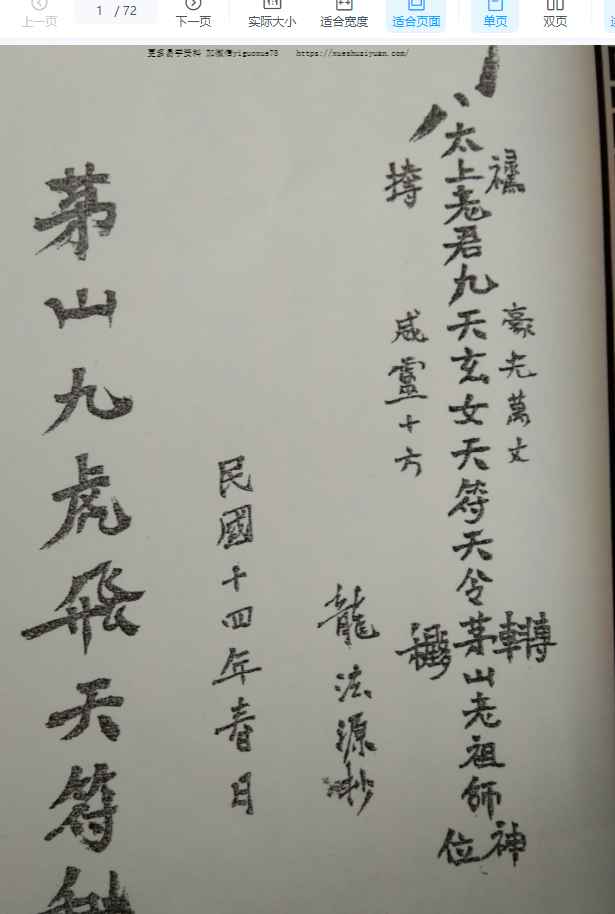 上一页
1 / 72
下一页
实际大小
适合宽度
适合页面
单页
双页
更多易学资料 加微信yiguoxue78 https://xueshusiyuan.com/
豪光萬丈
太上老君九天玄女天符天令茅山老祖師神位
威靈十方
龍法源抄
民國十四年春日
茅山九虎飛天符